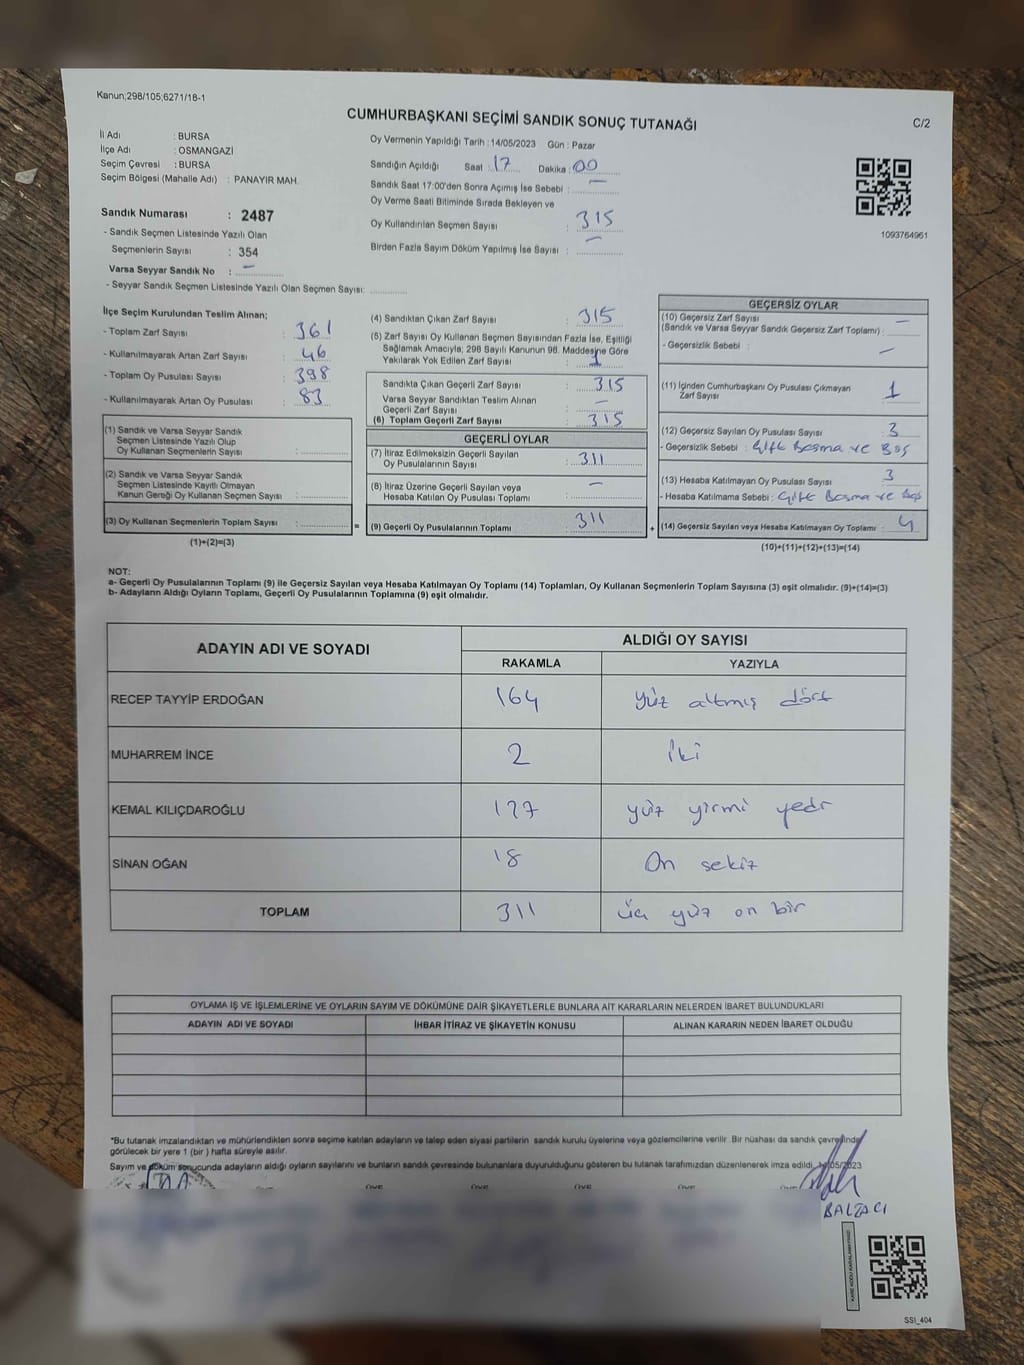 Kanun;298/105;6271/18-1
CUMHURBAŞKANI SEÇİMİ SANDIK SONUÇ TUTANAĞI
C/2
İl Adı : BURSA
İlçe Adı : OSMANGAZİ
Seçim Çevresi : BURSA
Seçim Bölgesi (Mahalle Adı) : PANAYIR MAH.
Sandık Numarası : 2487
- Sandık Seçmen Listesinde Yazılı Olan
Seçmenlerin Sayısı : 354
Varsa Seyyar Sandık No : –
- Seyyar Sandık Seçmen Listesinde Yazılı Olan Seçmen Sayısı: ............
Oy Vermenin Yapıldığı Tarih : 14/05/2023 Gün : Pazar
Sandığın Açıldığı Saat : 17 Dakika : 00
Sandık Saat 17:00'den Sonra Açılmış İse Sebebi : –
Oy Verme Saati Bitiminde Sırada Bekleyen ve
Oy Kullandırılan Seçmen Sayısı : 315
Birden Fazla Sayım Döküm Yapılmış İse Sayısı : –
1093764961
İlçe Seçim Kurulundan Teslim Alınan;
- Toplam Zarf Sayısı : 361
- Kullanılmayarak Artan Zarf Sayısı : 46
- Toplam Oy Pusulası Sayısı : 398
- Kullanılmayarak Artan Oy Pusulası : 83
(1) Sandık ve Varsa Seyyar Sandık
Seçmen Listesinde Yazılı Olup
Oy Kullanan Seçmenlerin Sayısı : ............
(2) Sandık ve Varsa Seyyar Sandık
Seçmen Listesinde Kayıtlı Olmayan
Kanun Gereği Oy Kullanan Seçmen Sayısı : ............
(3) Oy Kullanan Seçmenlerin Toplam Sayısı : ............ =
(1)+(2)=(3)
(4) Sandıktan Çıkan Zarf Sayısı : 315
(5) Zarf Sayısı Oy Kullanan Seçmen Sayısından Fazla İse, Eşitliği
Sağlamak Amacıyla; 298 Sayılı Kanunun 98. Maddesine Göre
Yakılarak Yok Edilen Zarf Sayısı : 1
Sandıkta Çıkan Geçerli Zarf Sayısı : 315
Varsa Seyyar Sandıktan Teslim Alınan
Geçerli Zarf Sayısı : –
(6) Toplam Geçerli Zarf Sayısı : 315
GEÇERLİ OYLAR
(7) İtiraz Edilmeksizin Geçerli Sayılan
Oy Pusulalarının Sayısı : 311
(8) İtiraz Üzerine Geçerli Sayılan veya
Hesaba Katılan Oy Pusulası Toplamı : –
(9) Geçerli Oy Pusulalarının Toplamı : 311 +
GEÇERSİZ OYLAR
(10) Geçersiz Zarf Sayısı
(Sandık ve Varsa Seyyar Sandık Geçersiz Zarf Toplamı) : –
- Geçersizlik Sebebi : –
(11) İçinden Cumhurbaşkanı Oy Pusulası Çıkmayan
Zarf Sayısı : 1
(12) Geçersiz Sayılan Oy Pusulası Sayısı : 3
- Geçersizlik Sebebi : Çift Basma ve Boş
(13) Hesaba Katılmayan Oy Pusulası Sayısı : 3
- Hesaba Katılmama Sebebi : Çift Basma ve Boş
(14) Geçersiz Sayılan veya Hesaba Katılmayan Oy Toplamı : 4
(10)+(11)+(12)+(13)=(14)
NOT:
a- Geçerli Oy Pusulalarının Toplamı (9) ile Geçersiz Sayılan veya Hesaba Katılmayan Oy Toplamı (14) Toplamları, Oy Kullanan Seçmenlerin Toplam Sayısına (3) eşit olmalıdır. (9)+(14)=(3)
b- Adayların Aldığı Oyların Toplamı, Geçerli Oy Pusulalarının Toplamına (9) eşit olmalıdır.
ADAYIN ADI VE SOYADI ALDIĞI OY SAYISI
RAKAMLA YAZIYLA
RECEP TAYYİP ERDOĞAN 164 yüz altmış dört
MUHARREM İNCE 2 iki
KEMAL KILIÇDAROĞLU 127 yüz yirmi yedi
SİNAN OĞAN 18 On sekiz
TOPLAM 311 üç yüz on bir
OYLAMA İŞ VE İŞLEMLERİNE VE OYLARIN SAYIM VE DÖKÜMÜNE DAİR ŞİKAYETLERLE BUNLARA AİT KARARLARIN NELERDEN İBARET BULUNDUKLARI
ADAYIN ADI VE SOYADI İHBAR İTİRAZ VE ŞİKAYETİN KONUSU ALINAN KARARIN NEDEN İBARET OLDUĞU
*Bu tutanak imzalandıktan ve mühürlendikten sonra seçime katılan adayların ve talep eden siyasi partilerin sandık kurulu üyelerine veya gözlemcilerine verilir. Bir nüshası da sandık çevresinde
görülecek bir yere 1 (bir ) hafta süreyle asılır.
Sayım ve döküm sonucunda adayların aldığı oyların sayılarını ve bunların sandık çevresinde bulunanlara duyurulduğunu gösteren bu tutanak tarafımızdan düzenlenerek imza edildi.
BALZACI
SSİ_404